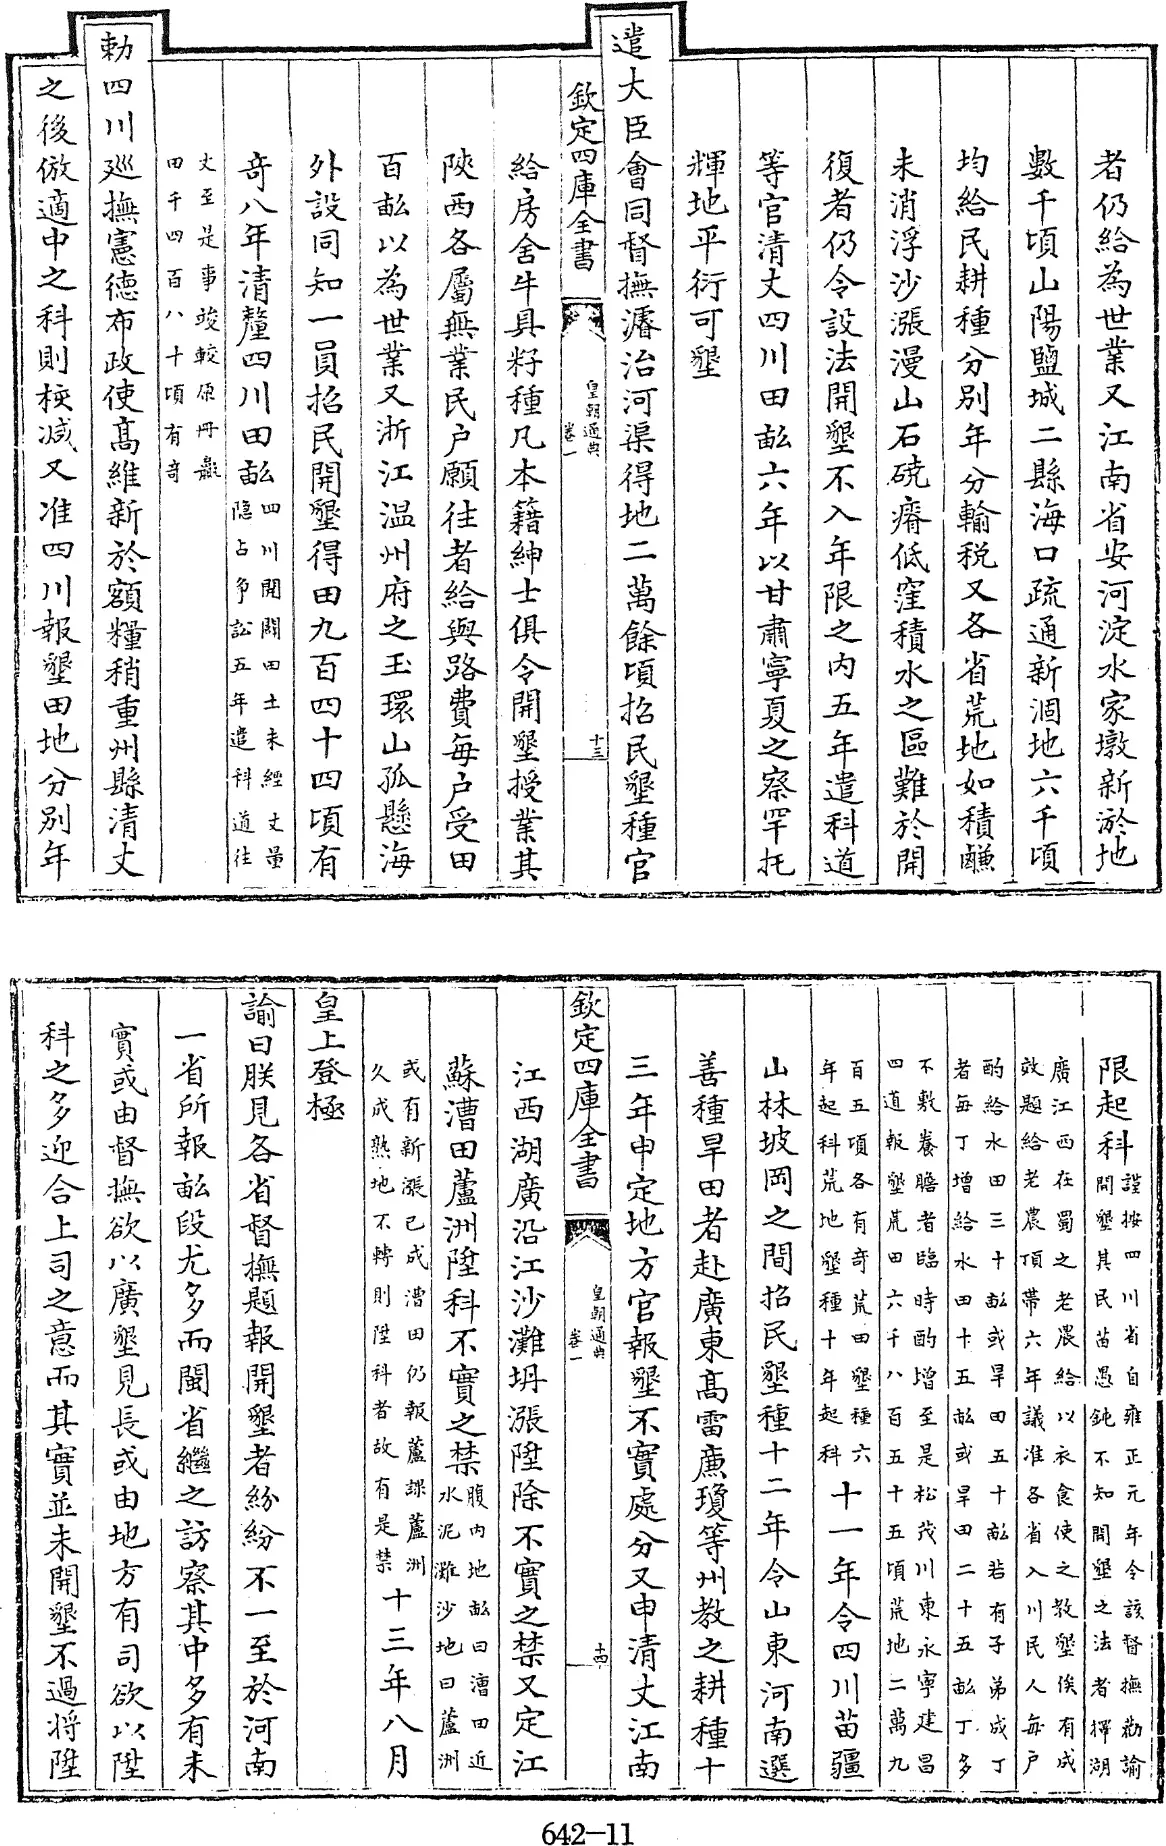 者仍給為世業又江南省安河淀水家墩新淤地
數千頃山陽鹽城二縣海口疏通新涸地六千頃
均給民耕種分別年分輸税又各省荒地如積鹻
未消浮沙漲漫山石磽瘠低窪積水之區難於開
復者仍令設法開墾不入年限之内五年遣科道
等官清丈四川田畝六年以甘肅寧夏之察罕托
輝地平衍可墾
遣大臣會同督撫濬治河渠得地二萬餘頃招民墾種官
欽定四庫全書
皇朝通典
卷一
十三
給房舍牛具籽種凡本籍紳士俱令開墾授業其
陜西各屬無業民户願往者給與路費每户受田
百畝以為世業又浙江温州府之玉環山孤懸海
外設同知一員招民開墾得田九百四十四頃有
奇八年清釐四川田畝
四川開闢田土未經丈量
隐占争訟五年遣科道往
丈至是事竣較原冊贏
田千四百八十頃有奇
勅四川廵撫憲德布政使高維新於額糧稍重州縣清丈
之後倣適中之科則核减又准四川報墾田地分别年
限起科
謹按四川省自雍正元年令該督撫勸諭
開墾其民苗愚鈍不知開墾之法者擇湖
廣江西在蜀之老農給以衣食使之教墾俟有成
效題給老農頂帶六年議准各省入川民人每户
酌給水田三十畝或旱田五十畝若有子弟成丁
者每丁增給水田十五畝或旱田二十五畝丁多
不敷養贍者臨時酌增至是松茂川東永寧建昌
四道報墾荒田六千八百五十五頃荒地二萬九
百五頃各有奇荒田墾種六
年起科荒地墾種十年起科
十一年令四川苗疆
山林坡岡之間招民墾種十二年令山東河南選
善種旱田者赴廣東高雷廉瓊等州教之耕種十
三年申定地方官報墾不實處分又申清丈江南
欽定四庫全書
皇朝通典
卷一
十四
江西湖廣沿江沙灘坍漲陞除不實之禁又定江
蘇漕田蘆洲陞科不實之禁
腹内地畝曰漕田近
水泥灘沙地曰蘆洲
或有新漲已成漕田仍報蘆課蘆洲
久成熟地不轉則陞科者故有是禁
十三年八月
皇上登極
諭曰朕見各省督撫題報開墾者紛紛不一至於河南
一省所報畝段尤多而閩省繼之訪察其中多有未
實或由督撫欲以廣墾見長或由地方有司欲以陞
科之多迎合上司之意而其實並未開墾不過将陞
642-11